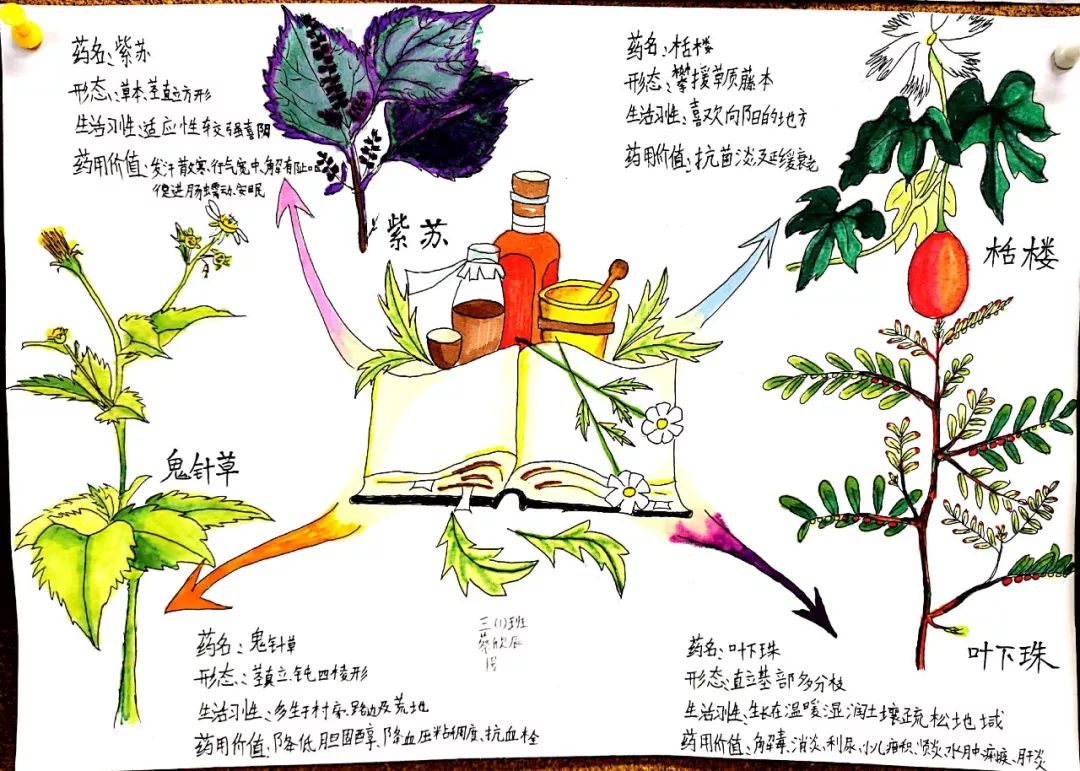 药名:紫苏
形态:草本茎直立方形
生活习性:适应性较强喜阴
药用价值:发汗散寒、行气宽中、解有止
促进肠蠕动、安眠
紫苏
药名:栝楼
形态:攀援草质藤本
生活习性:喜欢向阳的地方
药用价值:抗菌淡及延缓衰老
栝楼
鬼针草
药名:鬼针草
形态:茎直立.钝四棱形
生活习性:多生于村旁、路边及荒地
药用价值:降低胆固醇、降血压粘稠度、抗血栓
三(1)班
蔡欣辰
1号
叶下珠
药名:叶下珠
形态:直立基部多分枝
生活习性:生长在温暖湿润土壤疏松地域
药用价值:解毒、消炎、利尿、小儿疳积、肾炎、水肿、痢疾、肝炎